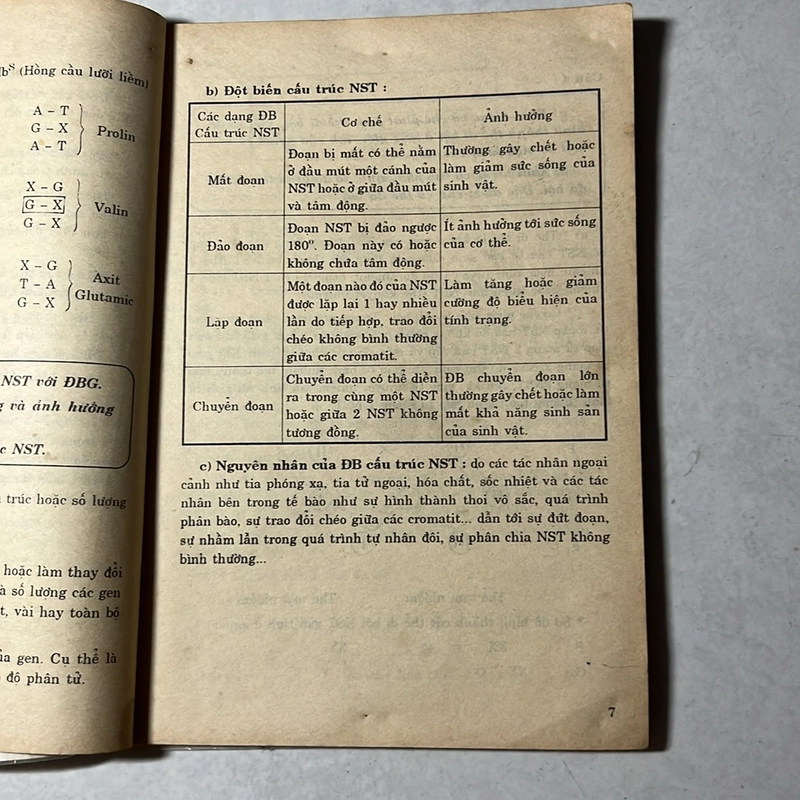 b^S (Hồng cầu lưỡi liềm)
A – T
G – X
A – T
Prolin
X – G
G – X
G – X
Valin
X – G
T – A
G – X
Axit
Glutamic
NST với ĐBG.
và ảnh hưởng
NST.
trúc hoặc số lượng
hoặc làm thay đổi
số lượng các gen
vài hay toàn bộ
của gen. Cụ thể là
độ phân tử.
b) Đột biến cấu trúc NST :
Các dạng ĐB
Cấu trúc NST
Cơ chế
Ảnh hưởng
Mất đoạn
Đoạn bị mất có thể nằm
ở đầu mút một cánh của
NST hoặc ở giữa đầu mút
và tâm động.
Thường gây chết hoặc
làm giảm sức sống của
sinh vật.
Đảo đoạn
Đoạn NST bị đảo ngược
180°. Đoạn này có hoặc
không chứa tâm động.
Ít ảnh hưởng tới sức sống
của cơ thể.
Lặp đoạn
Một đoạn nào đó của NST
được lặp lại 1 hay nhiều
lần do tiếp hợp, trao đổi
chéo không bình thường
giữa các cromatit.
Làm tăng hoặc giảm
cường độ biểu hiện của
tính trạng.
Chuyển đoạn
Chuyển đoạn có thể diễn
ra trong cùng một NST
hoặc giữa 2 NST không
tương đồng.
ĐB chuyển đoạn lớn
thường gây chết hoặc làm
mất khả năng sinh sản
của sinh vật.
c) Nguyên nhân của ĐB cấu trúc NST : do các tác nhân ngoại
cảnh như tia phóng xạ, tia tử ngoại, hóa chất, sốc nhiệt và các tác
nhân bên trong tế bào như sự hình thành thoi vô sắc, quá trình
phân bào, sự trao đổi chéo giữa các cromatit... dẫn tới sự đứt đoạn,
sự nhầm lẫn trong quá trình tự nhân đôi, sự phân chia NST không
bình thường...
7